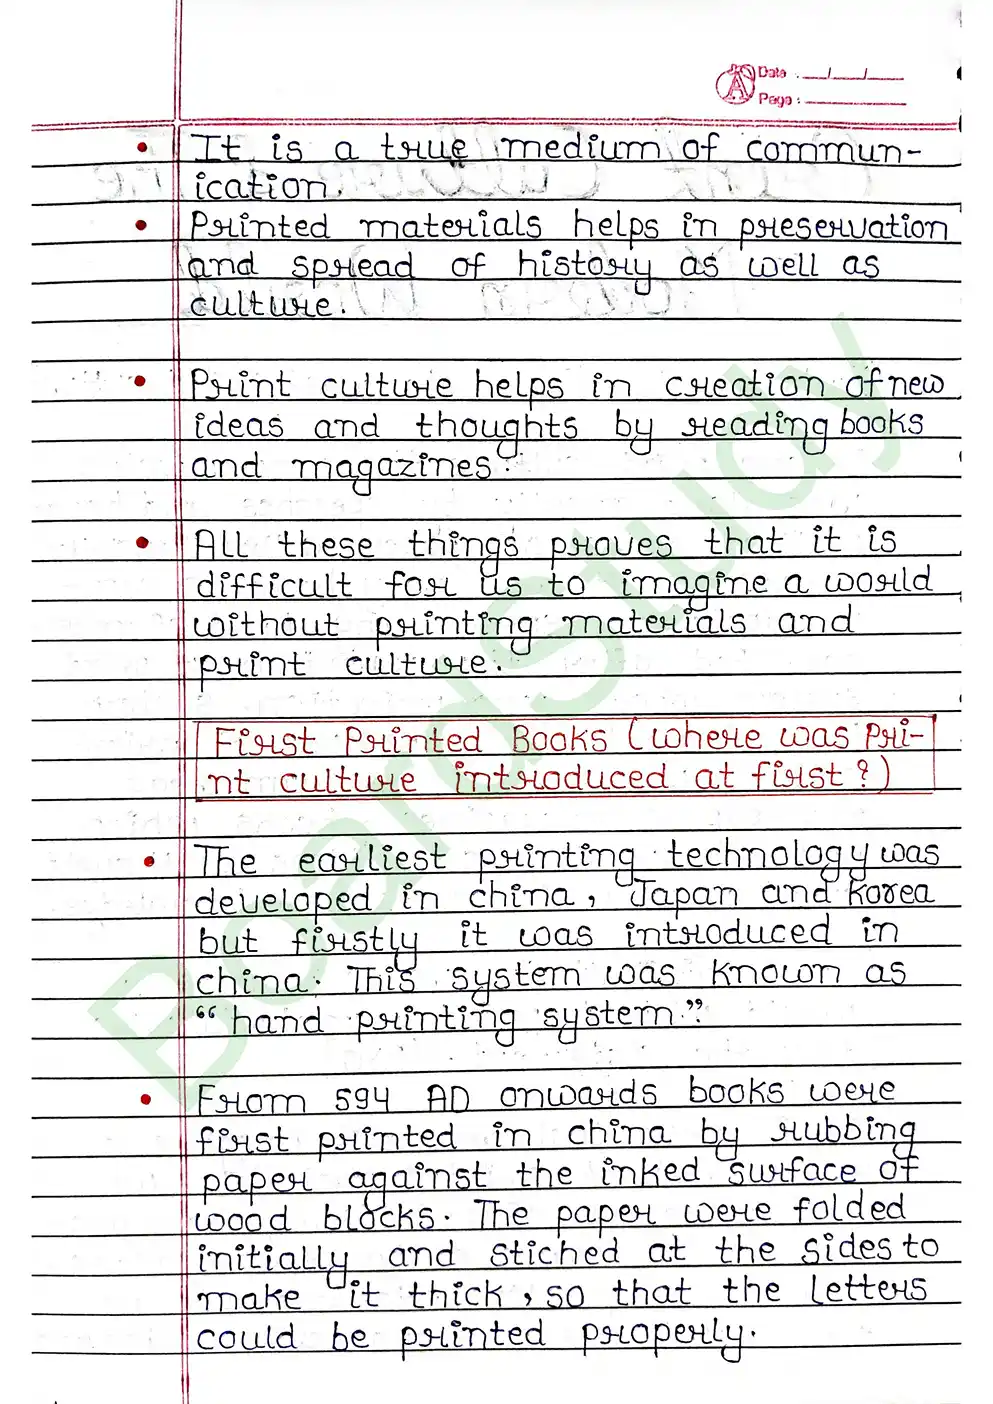 Date : __/__/__
Page :
• It is a true medium of commun-
ication.
• Printed materials helps in preservation
and spread of history as well as
culture.
• Print culture helps in creation of new
ideas and thoughts by reading books
and magazines.
• All these things proves that it is
difficult for us to imagine a world
without printing materials and
print culture.
First Printed Books (where was pri-
nt culture introduced at first?)
• The earliest printing technology was
developed in china, Japan and Korea
but firstly it was introduced in
china. This system was known as
“hand printing system.”
• From 594 AD onwards books were
first printed in china by rubbing
paper against the inked surface of
wood blocks. The paper were folded
initially and stiched at the sides to
make it thick, so that the letters
could be printed properly.
BoardStudy